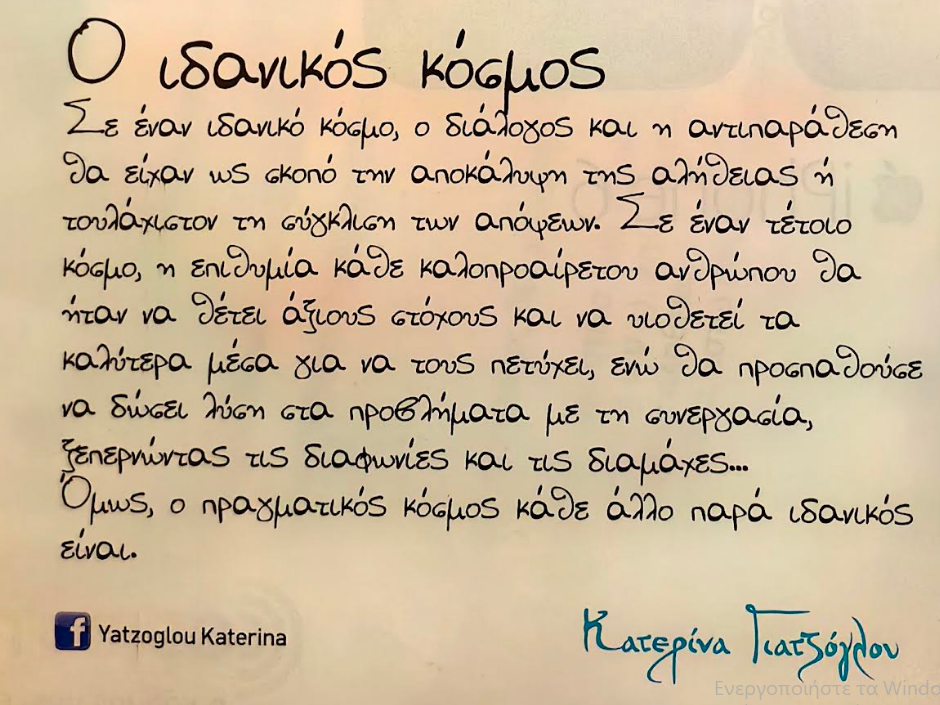 Ο ιδανικός κόσμος
Σε έναν ιδανικό κόσμο, ο διάλογος και η αντιπαράθεση
θα είχαν ως σκοπό την αποκάλυψη της αλήθειας ή
τουλάχιστον τη σύγκλιση των απόψεων. Σε έναν τέτοιο
κόσμο, η επιθυμία κάθε καλοπροαίρετου ανθρώπου θα
ήταν να θέτει άξιους στόχους και να υιοθετεί τα
καλύτερα μέσα για να τους πετύχει, ενώ θα προσπαθούσε
να δώσει λύση στα προβλήματα με τη συνεργασία,
ξεπερνώντας τις διαφωνίες και τις διαμάχες...
Όμως, ο πραγματικός κόσμος κάθε άλλο παρά ιδανικός
είναι.
f Yatzoglou Katerina
Κατερίνα Γιατζόγλου
Ενεργοποιήστε τα Windo